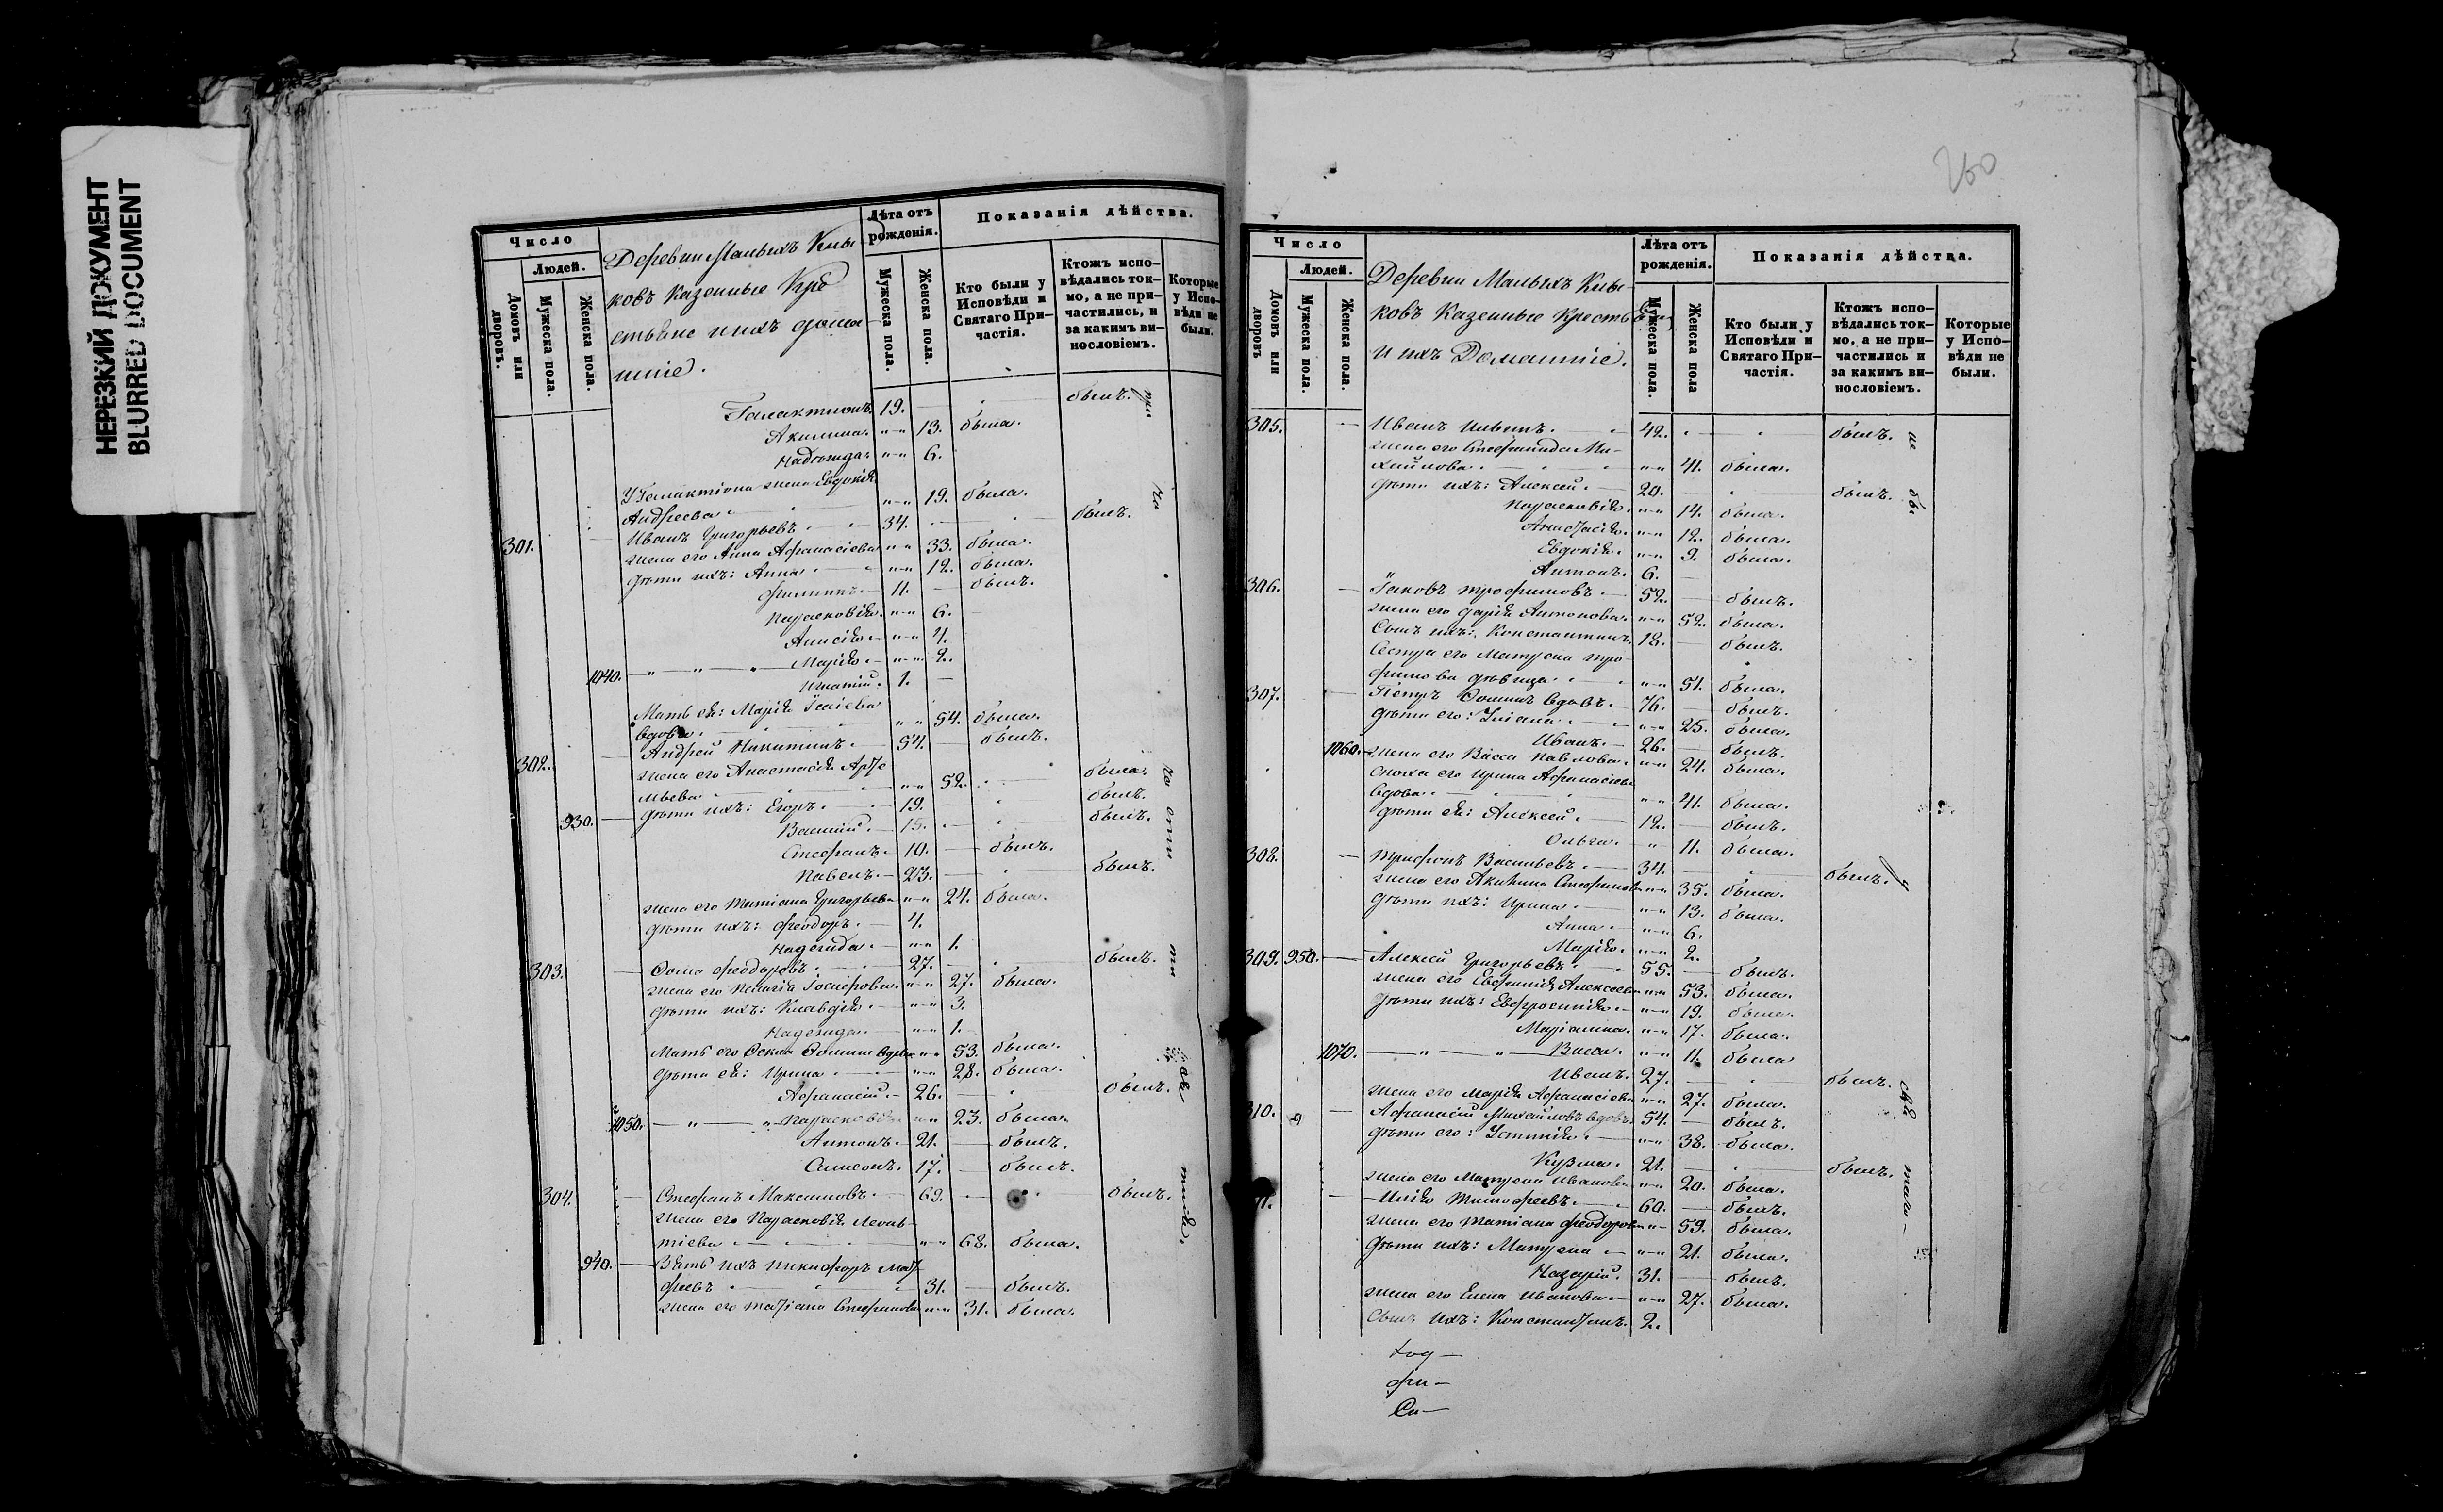 НЕРЕЗКИЙ ДОКУМЕНТ
BLURRED DOCUMENT
Число
Людей.
Домовъ или дворовъ.
Мужеска пола.
Женска пола.
Деревни Малыхъ Клы-
ковъ Казенные Кре
стьяне и ихъ дома-
шніе.
Лѣта отъ рожденія.
Мужеска пола.
Женска пола.
Показанія дѣйства.
Кто были у Исповѣди и Святаго При-частія.
Ктожъ испо-вѣдались ток-мо, а не при-частились, и за какимъ ви-нословіемъ.
Которые у Испо-вѣди не были.
Галактіонъ. 19. былъ.
Акилина. 13. была.
Надежда. 6.
У Галактіона жена Евдокія
Андреева 19. была.
301. Иванъ Григорьевъ 34. былъ.
жена его Анна Афанасіева 33. была.
дѣти ихъ: Анна 12. была.
Филиппъ. 11. былъ.
Парасковія. 6.
Анисія 4.
1040. Марія 2.
Игнатій. 1.
Мать ея: Марія Ісаіева
вдова. 54. была.
302. Андрей Никитинъ. 54. былъ.
жена его Анастасія Арте
мьева 52. была.
930. дѣти ихъ: Егоръ. 19. былъ.
Василій. 15. былъ.
Стефанъ. 10. былъ.
Павелъ. 23. былъ.
жена его Татіана Григорьева 24. была.
дѣти ихъ: Феодоръ. 4.
Надежда. 1.
303. Фома Феодоровъ. 27. былъ.
жена его Пелагія Іосифова. 27. была.
дѣти ихъ: Клавдія. 3.
Надежда. 1.
Мать его Фекла Фомина вдова 53. была.
дѣти ея: Ирина 28. была.
Афанасій. 26. былъ.
1050. Параскевія 23. была.
Антонъ. 21. былъ.
Симеонъ. 17. былъ.
304. Стефанъ Максимовъ. 69. былъ.
жена его Парасковія Леонь-
тіева 68. была.
940. Зять ихъ Никифоръ Мат-
феевъ 31. былъ.
жена его Татіана Стефанова 31. была.
260
Число
Людей.
Домовъ или дворовъ
Мужеска пола.
Женска пола.
Деревни Малыхъ Клы-
ковъ Казенные Крестьяне
и ихъ Домашніе.
Лѣта отъ рожденія.
Мужеска пола.
Женска пола
Показанія дѣйства.
Кто были у Исповѣди и Святаго При-частія.
Ктожъ испо-вѣдались ток-мо, а не при-частились и за какимъ ви-нословіемъ.
Которые у Испо-вѣди не были.
305. Иванъ 42. былъ.
жена его Стефанида Ми-
хайлова. 41. была.
дѣти ихъ: Алексей. 20. былъ.
Парасковія. 14. была.
Анастасія. 12. была.
Евдокія. 9. была.
Антонъ. 6.
306. Іаковъ Трофимовъ. 52. былъ.
жена его Дарія Антонова. 52. была.
Сынъ ихъ: Константинъ. 18. былъ.
Сестра его Матрена Тро-
фимова дѣвица. 51. была.
307. Петръ Фоминъ вдовъ. 76. былъ.
дѣти его: Уліана. 25. была.
Иванъ. 26. былъ.
1060. жена его Васса Павлова. 24. была.
сноха его Ирина Афанасіева
вдова. 41. была.
дѣти ея: Алексей. 12. былъ.
Ольга. 11. была.
308. Трифонъ Васильевъ. 34. былъ.
жена его Акилина Стефанова 35. была.
дѣти ихъ: Ирина. 13. была.
Анна. 6.
Марія. 2.
309. 950. Алексей Григорьевъ. 55. былъ.
жена его Евфимія Алексеева 53. была.
дѣти ихъ: Евфросинія. 19. была.
Маріанна. 17. была.
1070. Васса. 11. была
Иванъ. 27. былъ.
жена его Марія Афанасіева 27. была.
310. Афанасій Михайловъ вдовъ. 54. былъ.
дѣти его: Устинія. 38. была.
Кузма. 21. былъ.
жена его Матрена Иванова 20. была.
11. Илія Тимофеевъ. 60. былъ.
жена его Татіана Феодорова 59. была.
дѣти ихъ: Матрена 21. была.
Назарій. 31. былъ.
жена его Елена Иванова 27. была.
Сынъ ихъ: Константинъ. 2.